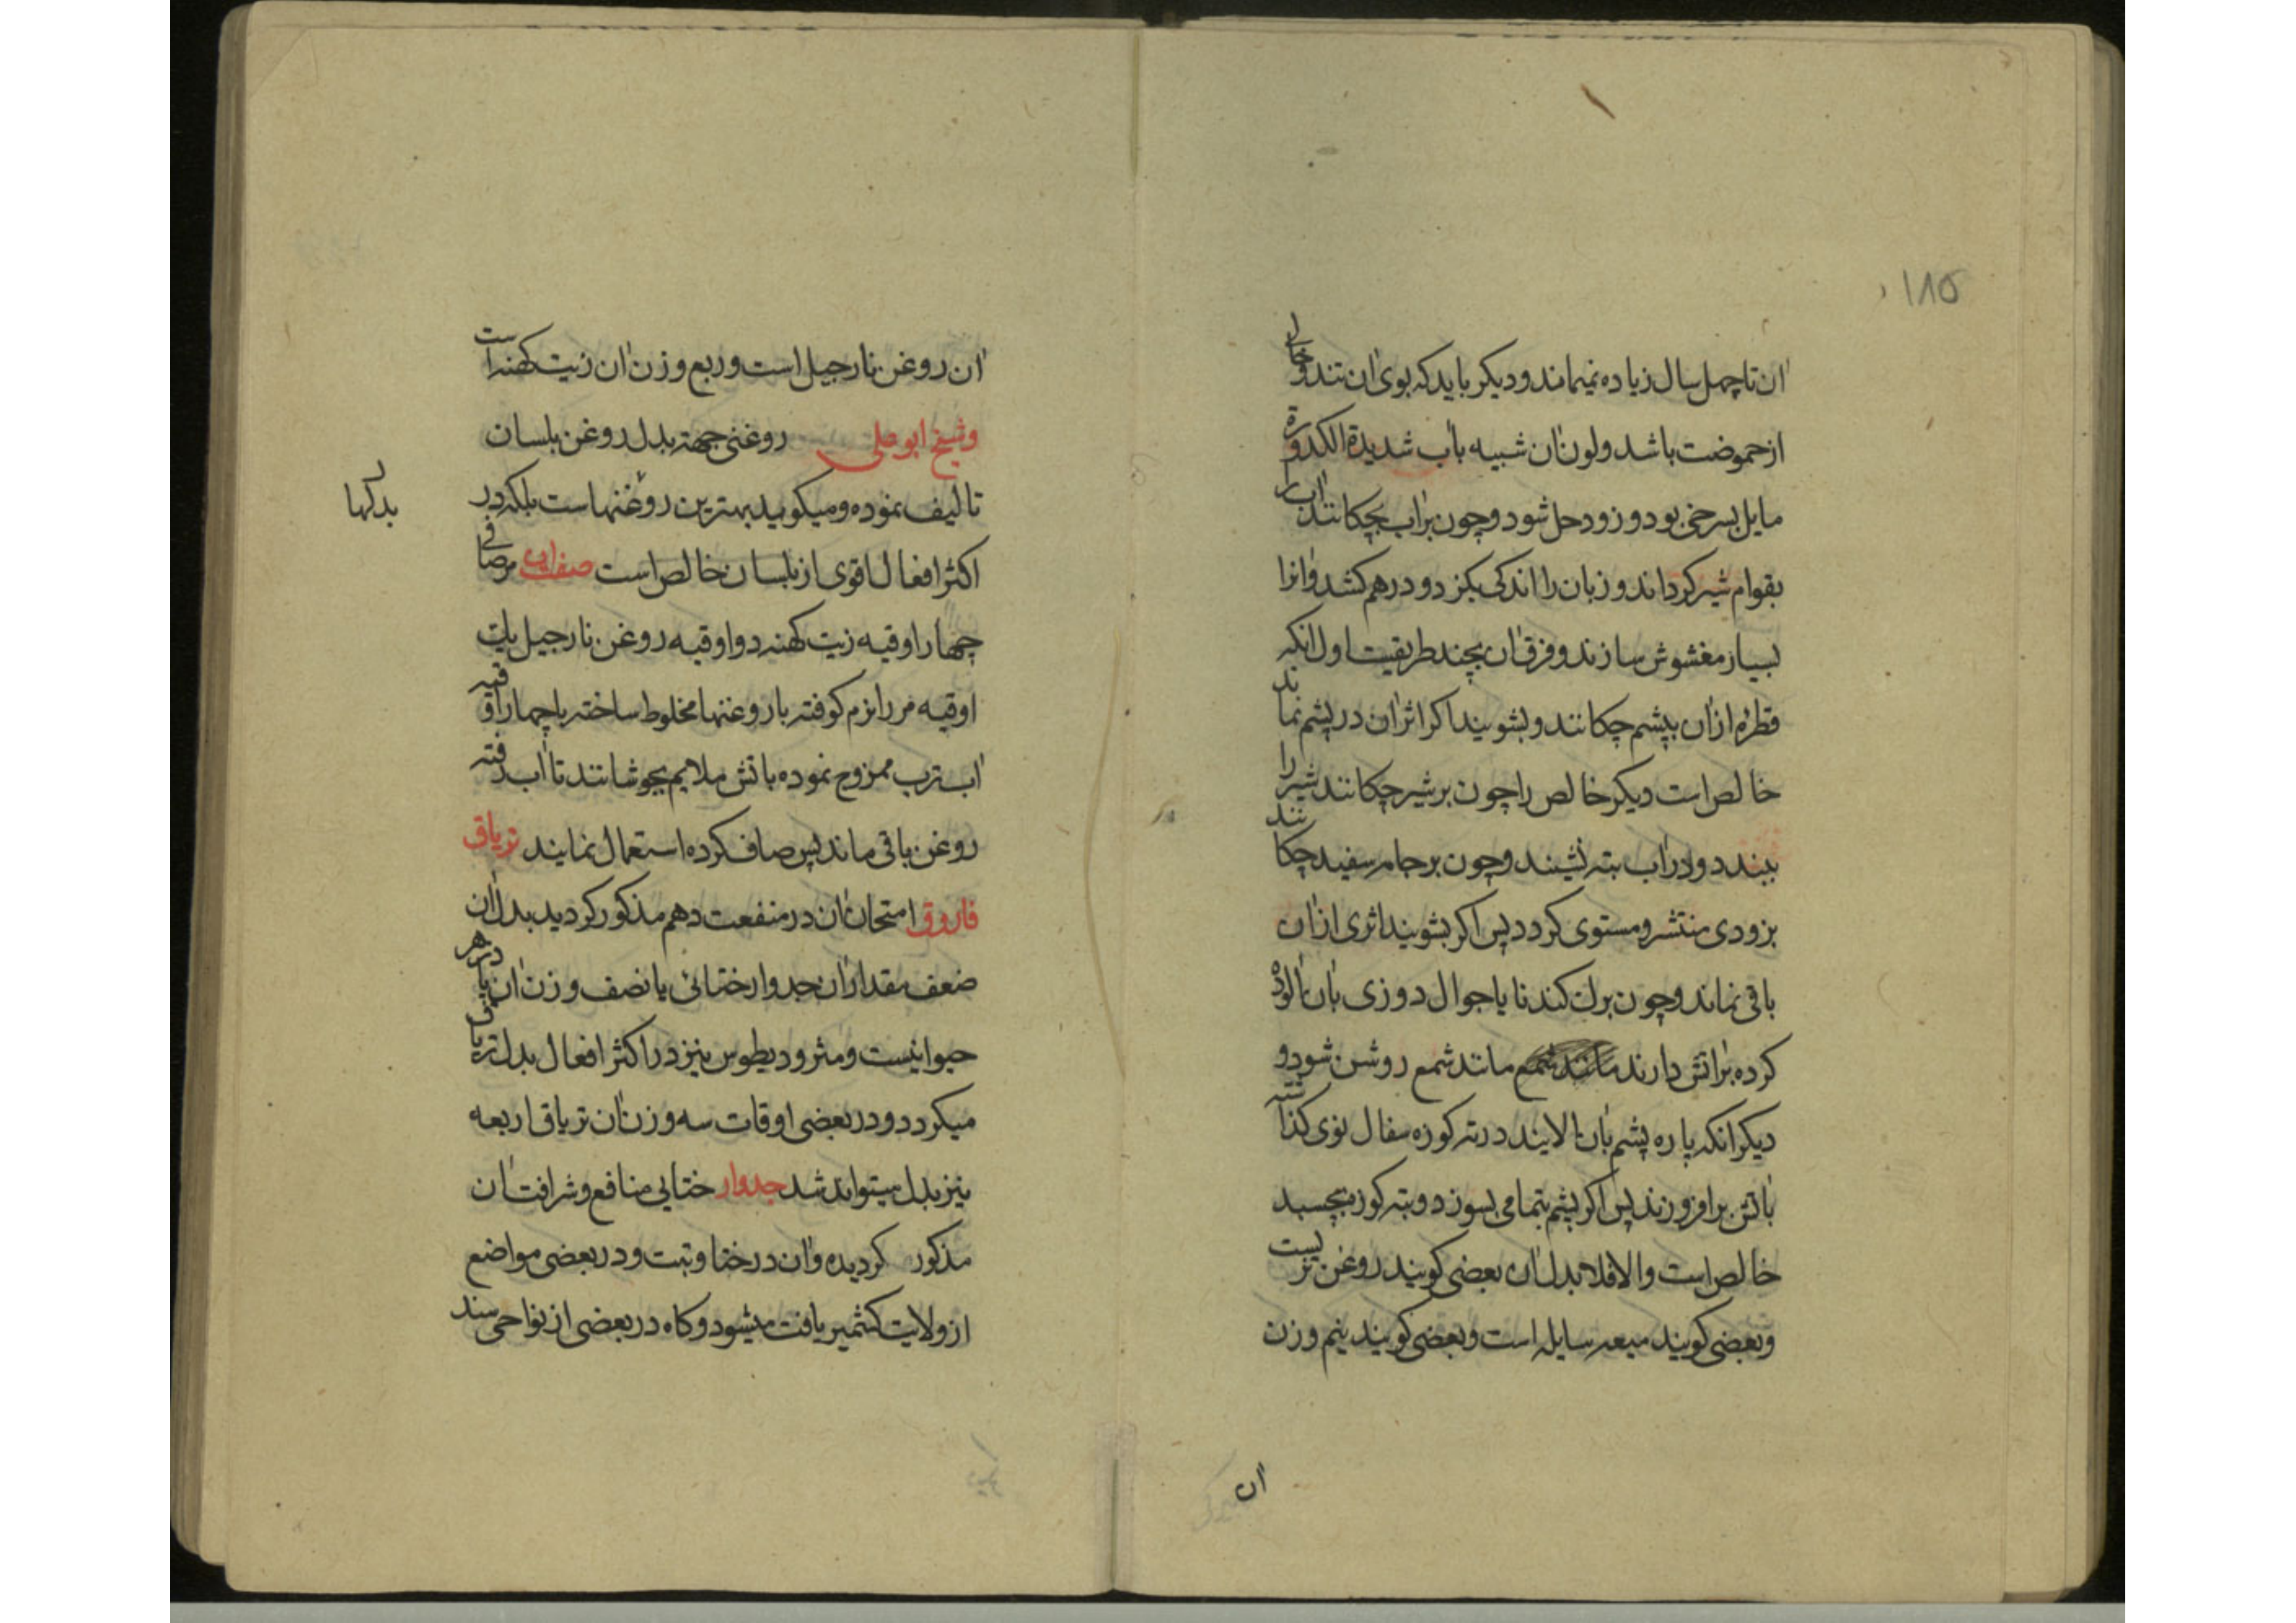 ۱۸۵
آن تا چهل سال زیاده نمیماند و دیکر باید که بوی آن تند و خالی
از حموضت باشد و لون آن شبیه بآب شدیدة الکدورة
مایل بسرخی بود و زود حل شود و چون برآب بچکانند آب را
بقوام شیر کرداند و زبان را اندکی بکزد و درهم کشد و آنرا
بسیار مغشوش سازند و فرق آن بچند طریقیت اول آنکه
قطرهٔ ازآن بپشم چکانند و بشویند اکر اثر آن در پشم نماند
خالص است دیکر خالص را چون بر شیر چکانند شیر را
ببندد و در آب بته نشیند و چون بر جامه سفید چکانند
بزودی منتشر و مستوی کردد پس اکر بشویند اثری از آن
باقی نماند و چون برک کندنا یا جوال دوزی بآن آلوده
کرده برآتش دارند مانند شمع مانند شمع روشن شود و
دیکر آنکه پاره پشم بآن آلایند در ته کوزه سفال نوی کذاشته
بآتش برافروزند پس اکر پشم بتمامی بسوزد و بته کوزه بچسبد
خالص است والا فلا بدل آن بعضی کویند روغن تربست
و بعضی کویند میعه سایله است و بعضی کویند بنیم وزن
آن
آن روغن نارجیل است و ربع وزن آن زیت کهنه است
وشیخ ابو علی روغنی جهته بدل روغن بلسان
تالیف نموده و میکوید بهترین روغنهاست بلکه در
بدلکها
اکثر افعال اقوی از بلسان خالص است صفت آن مر صافی
چهار اوقیه زیت کهنه دو اوقیه روغن نارجیل یک
اوقیه مر را نرم کوفته با روغنها مخلوط ساخته با چهار اوقیه
آب ترب ممزوج نموده باتش ملایم بجوشانند تا آب رفته
روغن باقی ماند پس صاف کرده استعمال نمایند تریاق
فاروق امتحان آن در منفعت دهم مذکور کردید بدل آن
ضعف مقدار آن جدوار ختائی یا نصف وزن آن پادزهر
حیوانیست و مثرودیطوس نیز در اکثر افعال بدل تریاق
میکردد و در بعضی اوقات سه وزن آن تریاق اربعه
نیز بدل میتواند شد جدوار ختایی منافع و شرافت آن
مذکور کردیده و آن در ختا و تبت و در بعضی مواضع
از ولایت کشمیر یافت میشود و کاه در بعضی از نواحی سند